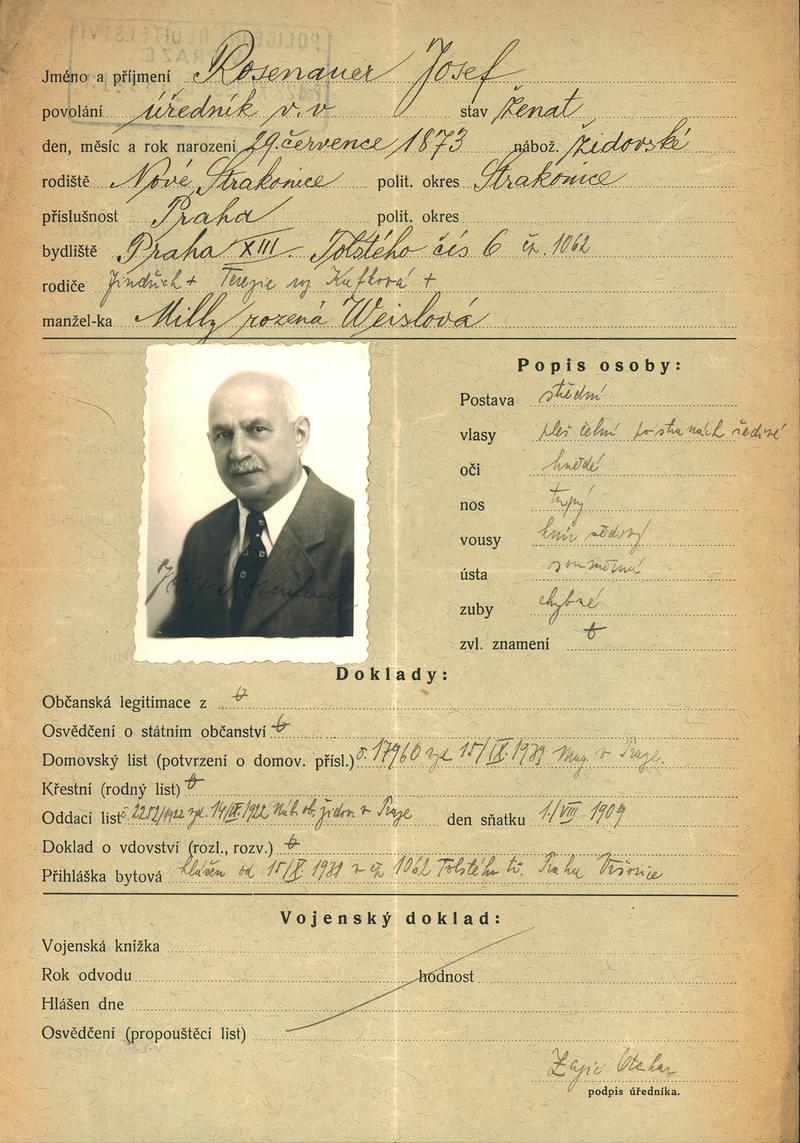 Jméno a příjmení Rosenauer Josef
povolání úředník v. v stav ženat
den, měsíc a rok narození 29. července 1873 nábož. židovské
rodiště Nové Strakonice polit. okres Strakonice
příslušnost Praha polit. okres
bydliště Praha XIII. Tolstého čís 6 čp. 1062
rodiče Jindřich + Terezie roz Kafková +
manžel-ka Milly rozená Weislová
Popis osoby:
Postava střední
vlasy pleš čelní po stranách šedivé
oči hnědé
nos tupý
vousy knír
ústa souměrná
zuby chybné
zvl. znamení
Josef Rosenauer
Doklady:
Občanská legitimace z
Osvědčení o státním občanství
Domovský list (potvrzení o domov. přísl.) č. 17960 vyd 15/IX. 1939 Mag. v Praze.
Křestní (rodný list)
Oddací list č. 2252/1922 vyd. 14/IX. 1922 Náb. ob. židov. v Praze den sňatku 1./VIII 1909
Doklad o vdovství (rozl., rozv.)
Přihláška bytová hlášen od 15/X. 1938 v čp 1062 Tolstého tř. Praha Vršovice
Vojenský doklad:
Vojenská knížka
Rok odvodu hodnost
Hlášen dne
Osvědčení (propouštěcí list)
Zajíc Otakar
podpis úředníka.